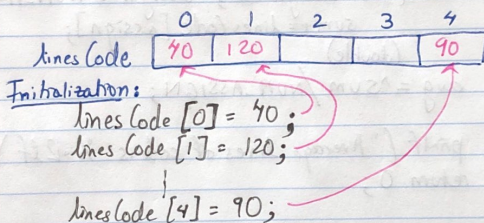 0 1 2 3 4
lines Code 40 120 90
Initialization:
lines Code [0] = 40;
lines Code [1] = 120;
lines Code [4] = 90;